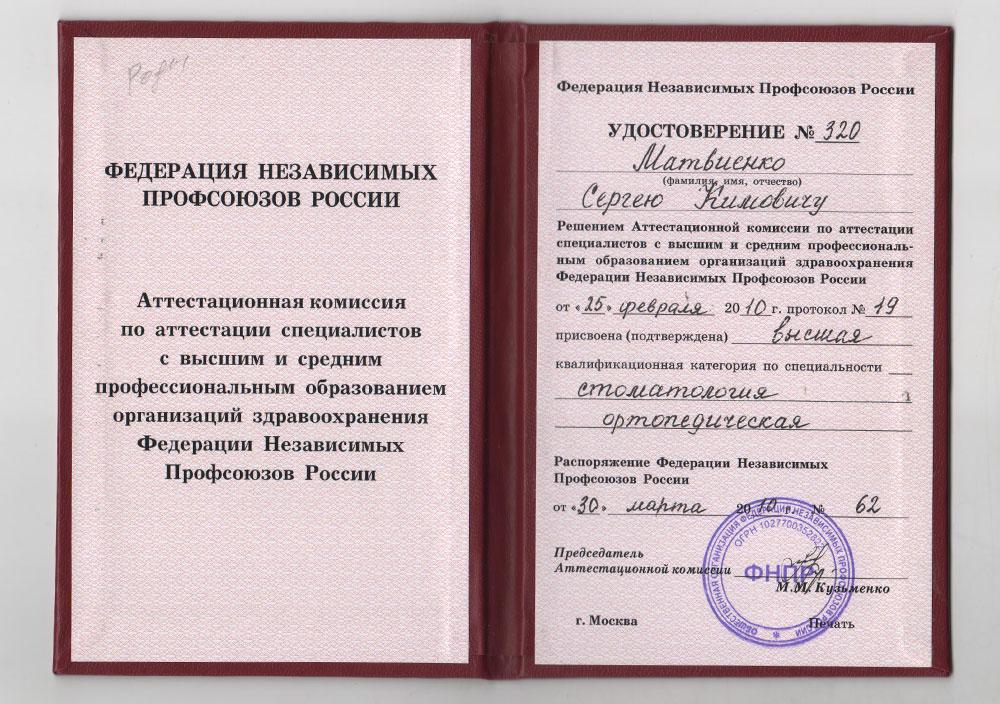 ФЕДЕРАЦИЯ НЕЗАВИСИМЫХ
ПРОФСОЮЗОВ РОССИИ
Аттестационная комиссия
по аттестации специалистов
с высшим и средним
профессиональным образованием
организаций здравоохранения
Федерации Независимых
Профсоюзов России
Федерация Независимых Профсоюзов России
УДОСТОВЕРЕНИЕ № 320
Матвиенко
(фамилия, имя, отчество)
Сергею Кимовичу
Решением Аттестационной комиссии по аттестации
специалистов с высшим и средним профессиональ-
ным образованием организаций здравоохранения
Федерации Независимых Профсоюзов России
от «25» февраля 2010 г. протокол № 19
присвоена (подтверждена) высшая
квалификационная категория по специальности
стоматология
ортопедическая
Распоряжение Федерации Независимых
Профсоюзов России
от «30» марта 2010 г. № 62
Председатель
Аттестационной комиссии
М.М. Кузьменко
г. Москва Печать
ОБЩЕСТВЕННАЯ ОРГАНИЗАЦИЯ ФЕДЕРАЦИЯ НЕЗАВИСИМЫХ ПРОФСОЮЗОВ РОССИИ
ФНПР